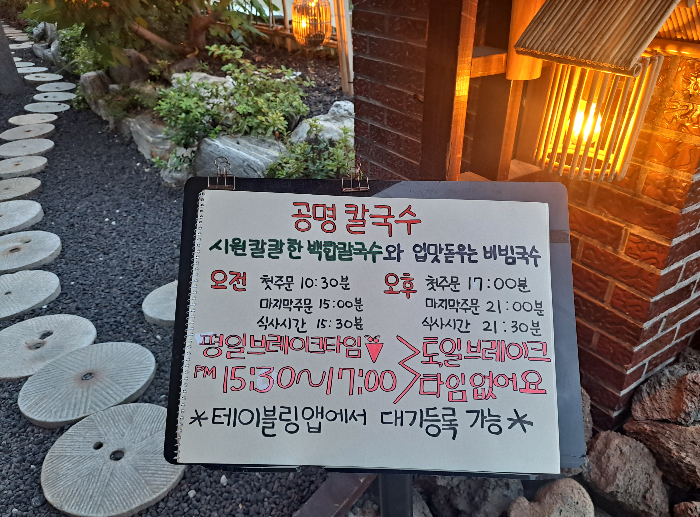 공명 칼국수
시원칼칼한 백합칼국수와 입맛돋우는 비빔국수
오전 첫주문 10:30분 오후 첫주문 17:00분
마지막주문 15:00분 마지막주문 21:00분
식사시간 15:30분 식사시간 21:30분
평일브레이크타임 토일브레이크
PM 15:30~17:00 타임없어요
*테이블링앱에서 대기등록 가능*